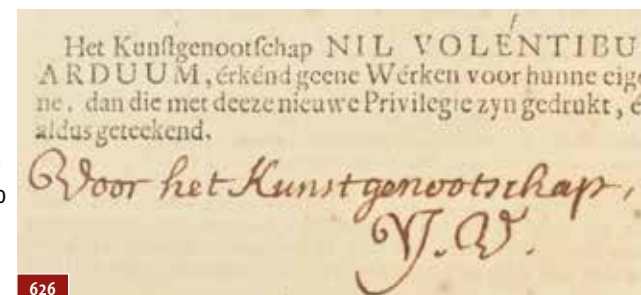 Het Kunſtgenootſchap NIL VOLENTIBU
ARDUUM, érkénd geene Wérken voor hunne eige
ne, dan die met deeze nieuwe Privilegie zyn gedrukt, é
aldus geteekend.
Voor het Kunstgenootschap,
626